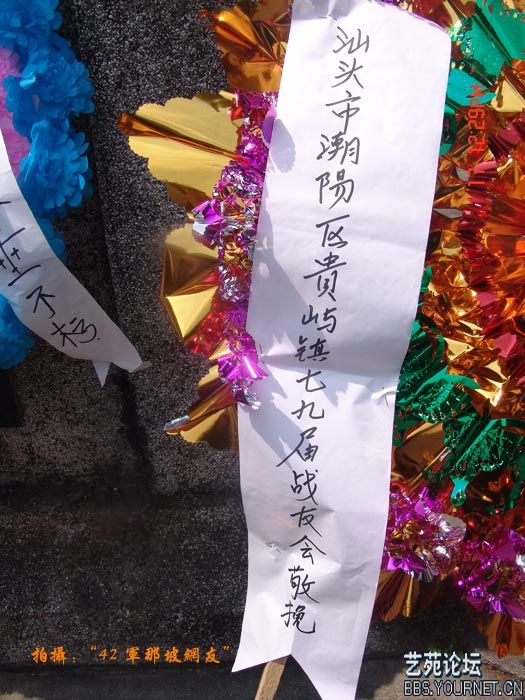 汕头市潮陽区貴屿镇七九届战友会敬挽
不朽
拍攝：“42 軍那坡網友”
艺苑论坛
BBS.YOURNET.CN